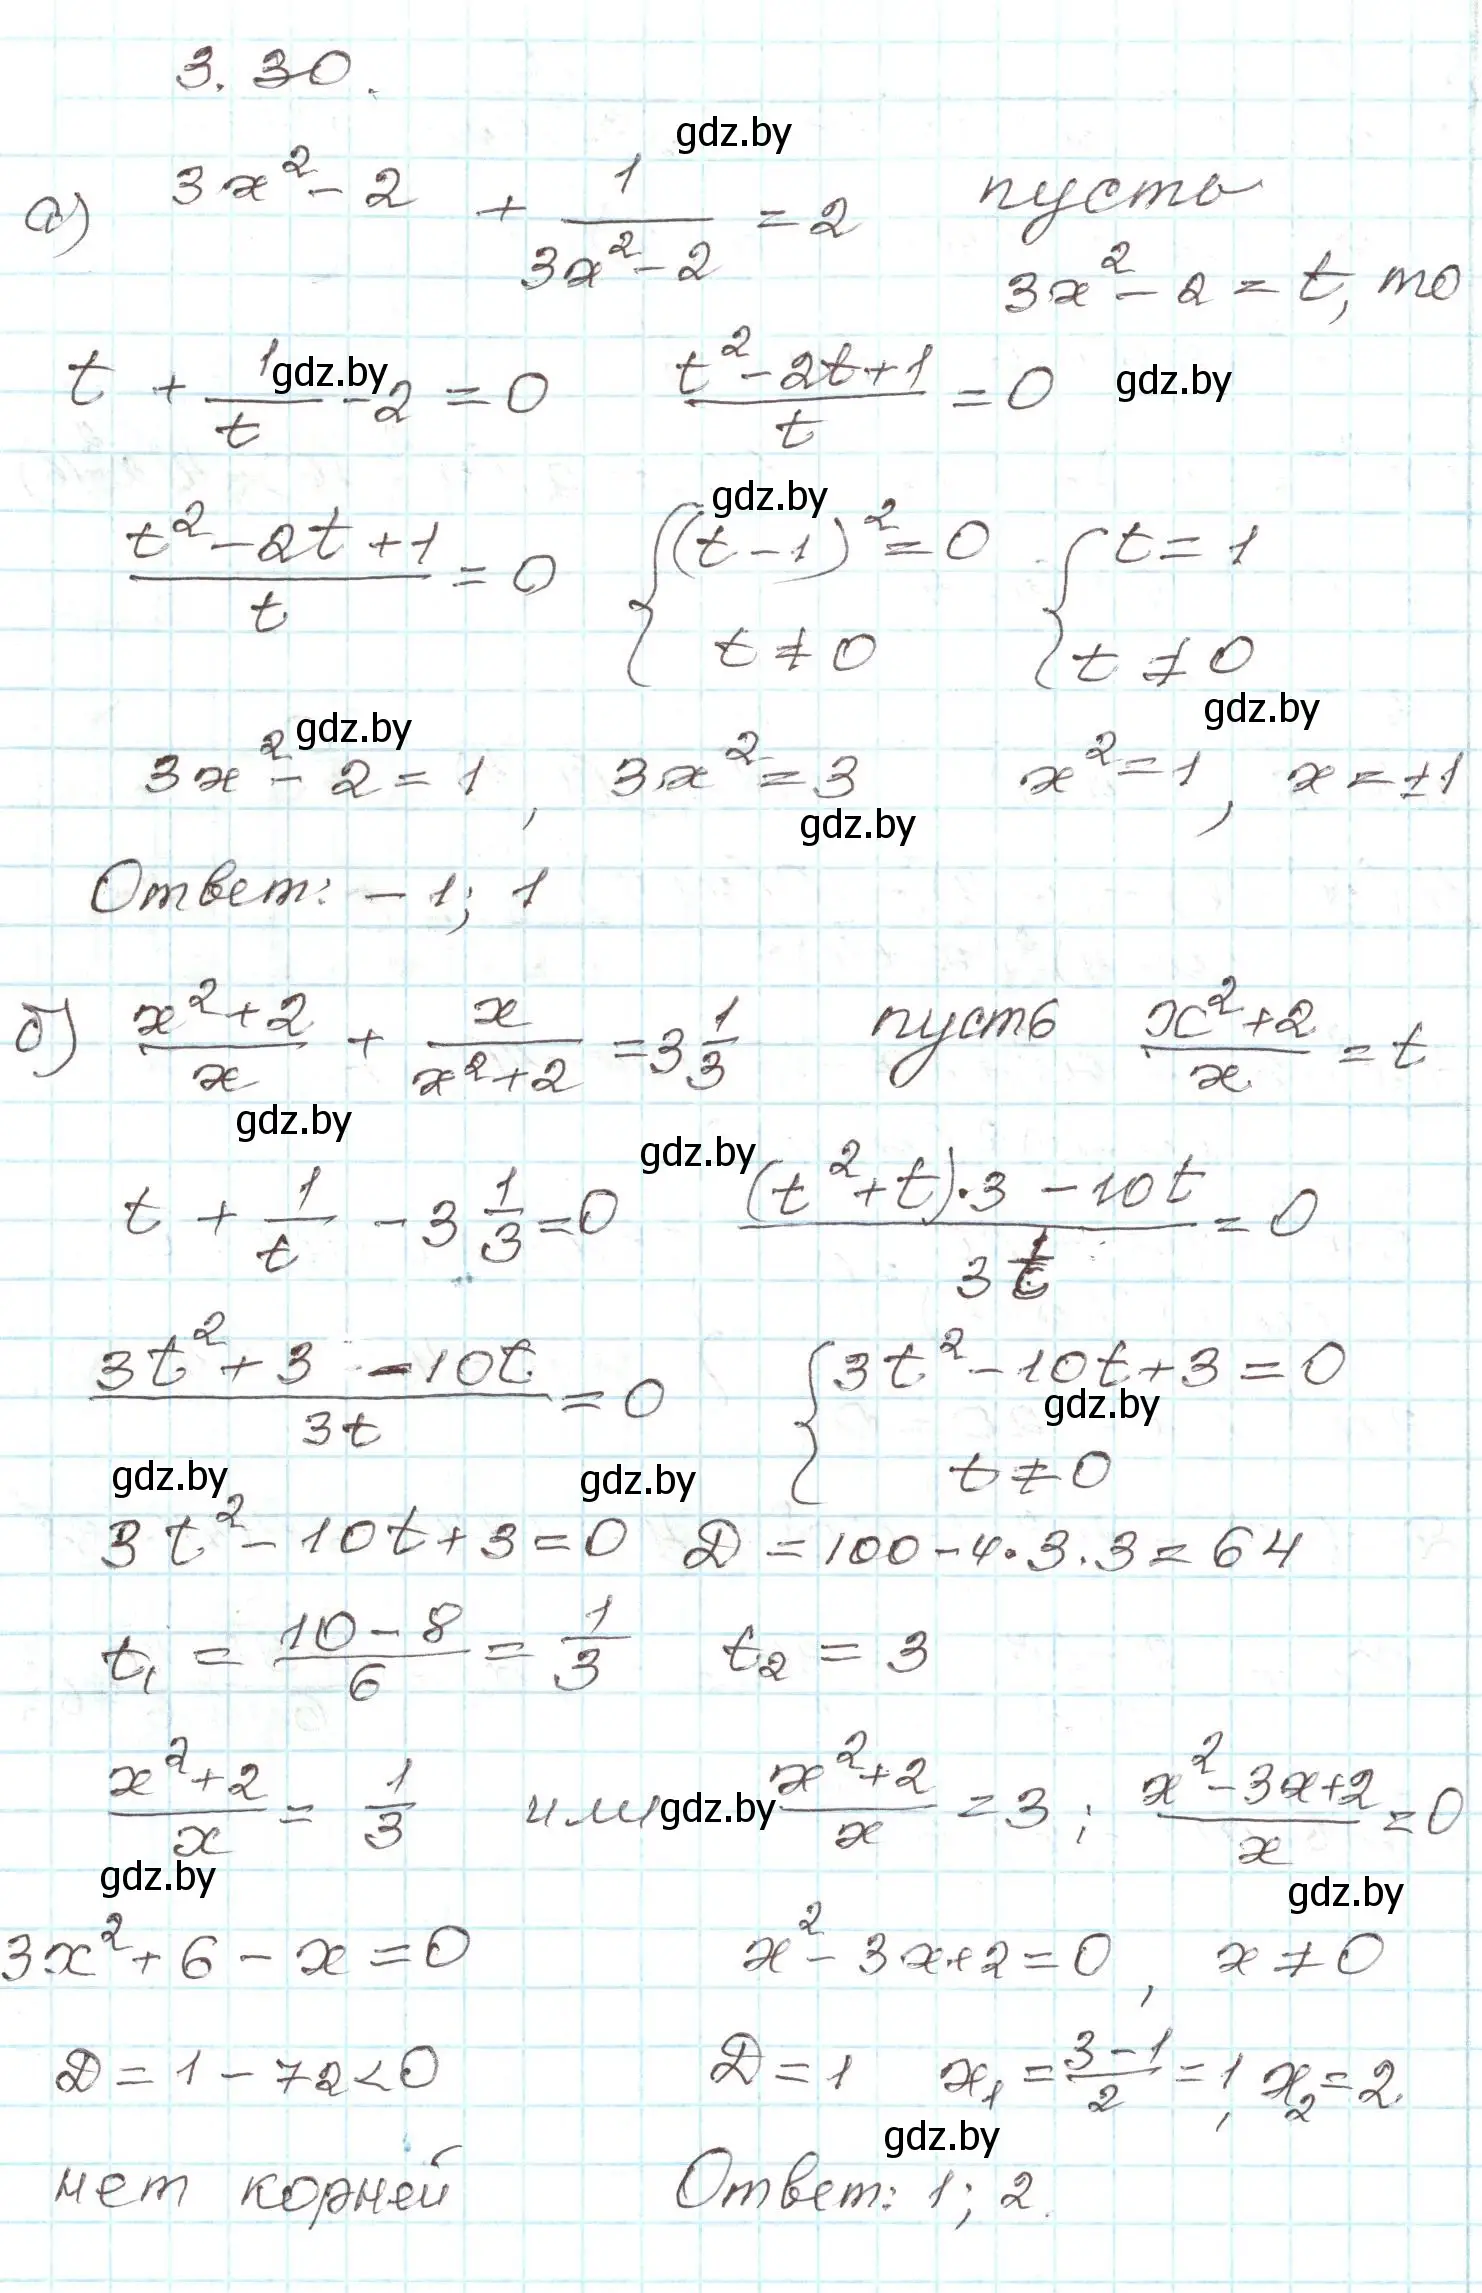 3.30.
gdz.by
а) 3x² - 2 + 1/(3x² - 2) = 2 пусть
3x² - 2 = t, то
t + 1/t - 2 = 0 (t² - 2t + 1)/t = 0
gdz.by gdz.by
gdz.by
(t² - 2t + 1)/t = 0 { (t - 1)² = 0 { t = 1
t ≠ 0 t ≠ 0
gdz.by gdz.by
3x² - 2 = 1, 3x² = 3 x² = 1, x = ±1
gdz.by
Ответ: -1; 1
б) (x² + 2)/x + x/(x² + 2) = 3 1/3 пусть (x² + 2)/x = t
gdz.by gdz.by
t + 1/t - 3 1/3 = 0 ((t² + t)·3 - 10t)/(3t) = 0
(3t² + 3 - 10t)/(3t) = 0 { 3t² - 10t + 3 = 0
gdz.by
t ≠ 0
gdz.by gdz.by
3t² - 10t + 3 = 0 D = 100 - 4·3·3 = 64
t₁ = (10 - 8)/6 = 1/3 t₂ = 3
(x² + 2)/x = 1/3 или gdz.by (x² + 2)/x = 3; (x² - 3x + 2)/x = 0
gdz.by gdz.by
3x² + 6 - x = 0 x² - 3x + 2 = 0, x ≠ 0
D = 1 - 72 < 0 D = 1 x₁ = (3 - 1)/2 = 1, x₂ = 2.
gdz.by
нет корней Ответ: 1; 2.